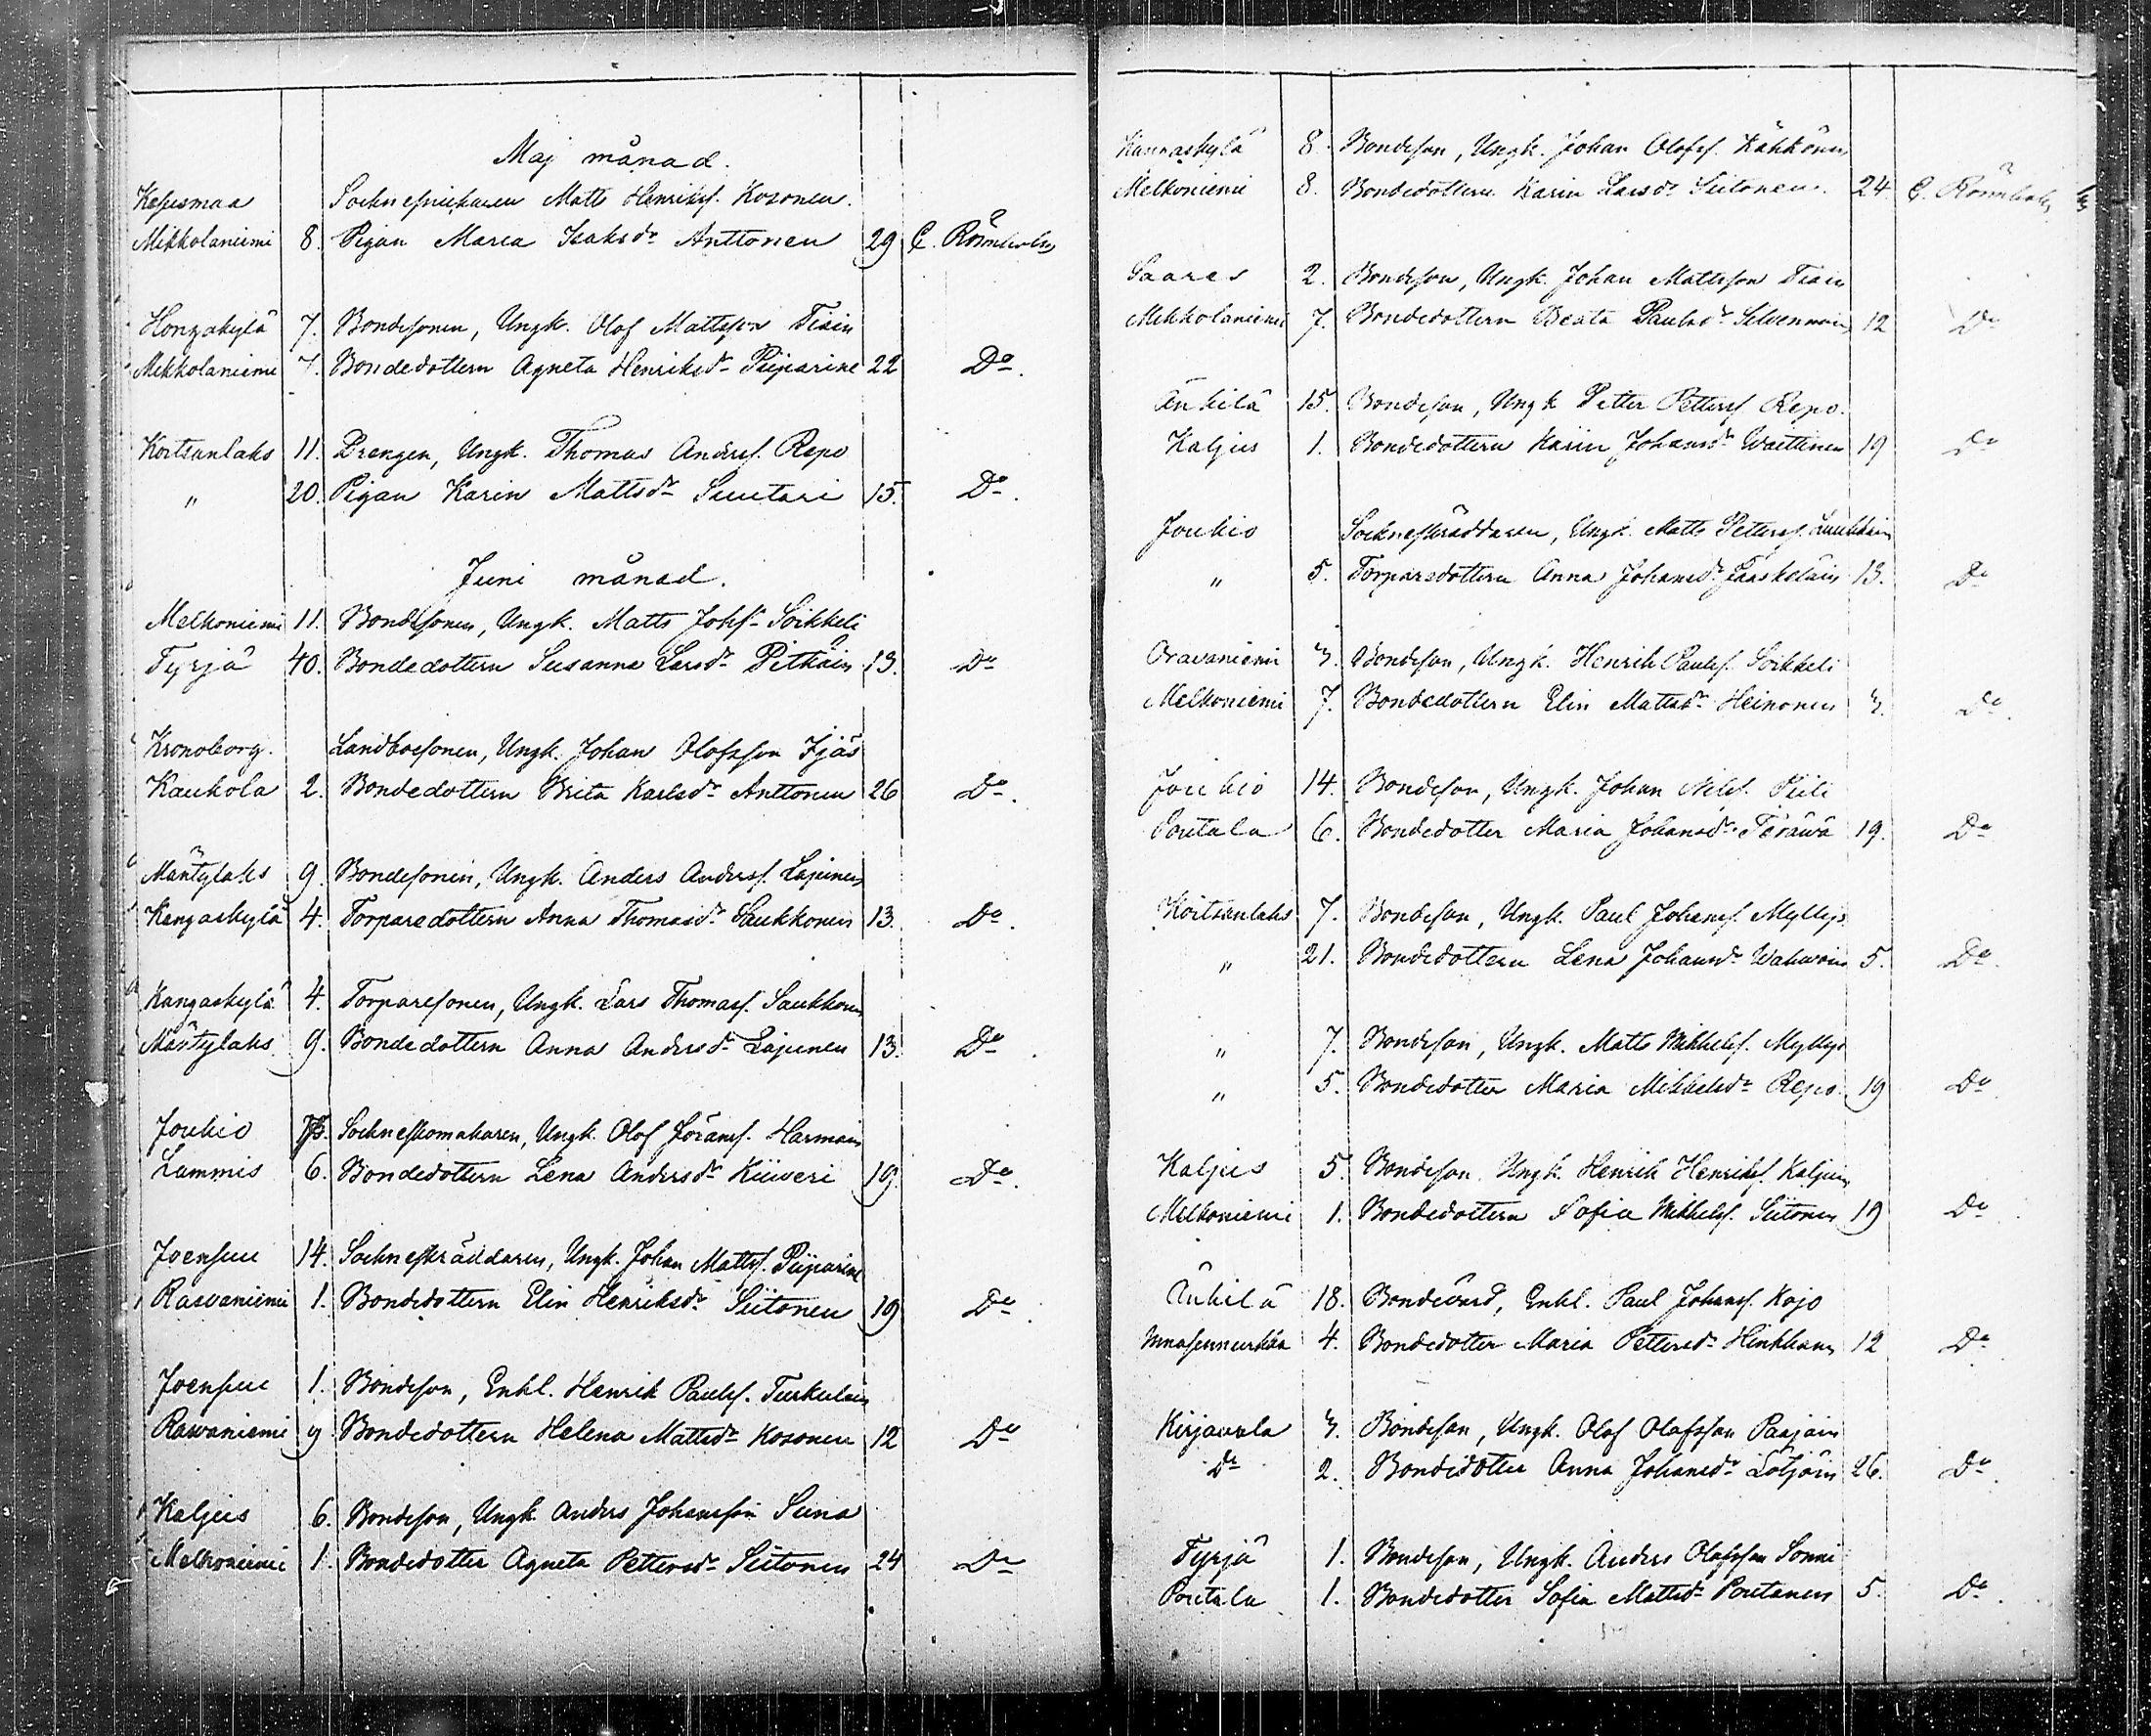 Maj månad.
Kesusmaa Socknesnickaren Matts Henriksf. Kosonen.
Mikkolaniemi 8. Pigan Maria Isaksdr Anttonen 29 C. Rönnholm
Honzakylä 7. Bondesonen, Ungk. Olof Mattsson Tiain
Mikkolaniemi 7. Bondedottern Agneta Henriksdr Piiparine 22 Do.
Koitsanlaks 11. Drengen, Ungk. Thomas Andersf. Repo
" 20. Pigan Karin Mattsdr Suutari 15. Do.
Juni månad.
Melkoniemi 11. Bondesonen, Ungk. Matts Johsf. Soikkeli
Tyrjä 40. Bondedottern Susanna Larsdr Pitkäin 13. Do
Kronoborg. Landboesonen, Ungk. Johan Olofsson Ijäs
Kaukola 2. Bondedottern Brita Karlsdr Anttonen 26 Do.
Mäntylaks 9. Bondesonen, Ungk. Anders Andersf. Lajunen
Kangaskylä 4. Torparedottern Anna Thomasdr Saukkonen 13. Do.
Kangaskylä 4. Torparesonen, Ungk. Lars Thomasf. Saukkonen
Mäntylaks 9. Bondedottern Anna Andersdr Lajunen 13. Do
Joukio Sockneskomakaren, Ungk. Olof Göransf. Harmain
Lammis 6. Bondedottern Lena Andersdr Kiiveri 19. Do.
Joensuu 14. Sockneskräddaren, Ungk. Johan Mattsf. Piiparine
Rasvaniemi 1. Bondedottern Elin Henriksdr Siitonen 19 Do
Joensuu 1. Bondeson, Enkl. Henrik Paulsf. Turkulain
Rasvaniemi 9 Bondedottern Helena Mattsdr Kosonen 12 Do
Kaljus 6. Bondeson, Ungk. Anders Johansson Suna
Melkoniemi 1. Bondedotter Agneta Pettersdr Siitonen 24 Do
Kannaskylä 8. Bondeson, Ungk. Johan Olofsf. Kähkönen
Melkoniemi 8. Bondedottern Karin Larsdr Siitonen. 24. C. Rönnholm
Saares 2. Bondeson, Ungk. Johan Mattsson Tiain
Mikkolaniemi 7. Bondedottern Beata Paulsdr Silvennoin 12 Do
Änkilä 15. Bondeson, Ungk Petter Pettersf Repo.
Kaljus 1. Bondedottern Karin Johansdr Waittinen 19 Do
Joukio Sockneskräddaren, Ungk. Matts Pettersf. Luukkain
" 5. Torparedottern Anna Johansdr Jääskeläin 13. Do
Oravaniemi 3. Bondeson, Ungk. Henrik Paulsf. Soikkeli
Melkoniemi 7. Bondedottern Elin Mattsdr Heinonen 3. Do.
Joukio 14. Bondeson, Ungk. Johan Nilsf. Piili
Poutala 6. Bondedotter Maria Johansdr Teräwä 19. Do
Koitsanlaks 7. Bondeson, Ungk. Paul Johansf. Myllys
" 21. Bondedottern Lena Johansdr 5. Do.
" 7. Bondeson, Ungk. Matts Mikkelsf. Myllys
" 5. Bondedotter Maria Mikkelsdr Repo. 19 Do
Kaljus 5. Bondeson Ungk. Henrik Henriksf. Kaljun
Melkoniemi 1. Bondedottern Sofia Mikkelsf. Siitonen 19 Do
Änkilä 18. Bondevärd, Enkl. Paul Johansf. Kojo
4. Bondedotter Maria Pettersdr Hinkkan 12 Do
Kirjavala 3. Bondeson, Ungk. Olof Olofsson Paajain
Do 2. Bondedotter Anna Johansdr Lötjöin 26. Do
Tyrjä 1. Bondeson, Ungk. Anders Olofsson Sonni
Poutala 1. Bondedotter Sofia Mattsdr Poutanen 5. Do.